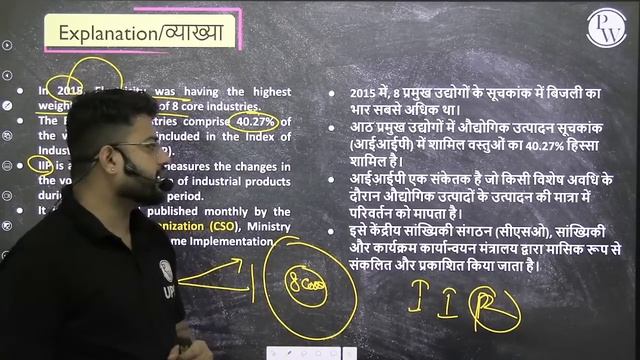 Explanation/व्याख्या
PW
In 2015, Electricity was having the highest
weight of 8 core industries.
The comprise 40.27% of
the included in the Index of
IIP is a measures the changes in
the of industrial products
period.
It published monthly by the
(CSO), Ministry
Implementation.
2015 में, 8 प्रमुख उद्योगों के सूचकांक में बिजली का
भार सबसे अधिक था।
आठ प्रमुख उद्योगों में औद्योगिक उत्पादन सूचकांक
(आईआईपी) में शामिल वस्तुओं का 40.27% हिस्सा
शामिल है।
आईआईपी एक संकेतक है जो किसी विशेष अवधि के
दौरान औद्योगिक उत्पादों के उत्पादन की मात्रा में
परिवर्तन को मापता है।
इसे केंद्रीय सांख्यिकी संगठन (सीएसओ), सांख्यिकी
और कार्यक्रम कार्यान्वयन मंत्रालय द्वारा मासिक रूप से
संकलित और प्रकाशित किया जाता है।
8 Core
UP